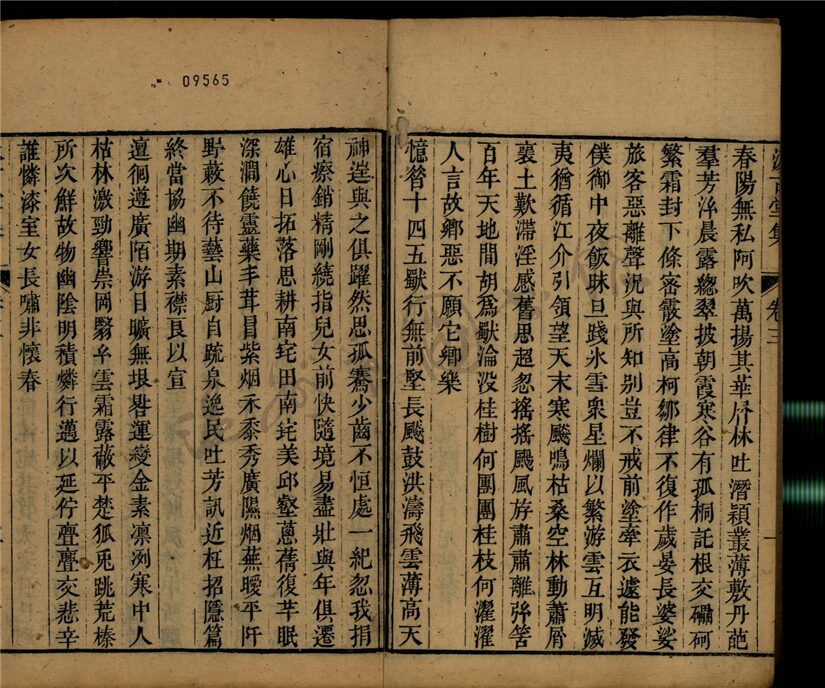 09565
堂集
卷三
一
春陽無私阿吹萬揚其華屏林吐潛穎叢薄敷丹葩
羣芳泮晨露總翠披朝霞寒谷有孤桐託根交礀砢
繁霜封下條密霰塗高柯鄒律不復作歲晏長婆娑
旅客惡離聲況與所知別豈不戒前塗牽衣遽能發
僕御中夜飯昧旦踐氷雪衆星爛以繁游雲互明滅
夷猶循江介引領望天末寒飇鳴枯桑空林動蕭屑
裹土歎滯淫感舊思超忽搖搖颺風斾肅肅離弦筈
百年天地間胡爲獸淪没桂樹何團團桂枝何濯濯
人言故鄉惡不願它鄉樂
憶昝十四五獸行無前堅長飇鼓洪濤飛雲薄高天
神逞與之俱躍然思孤騫少齒不恒處一紀忽我捐
宿瘵銷精剛繞指兒女前快隨境易盡壯與年俱遷
雄心日拓落思耕南宅田南宅美邱壑蔥蒨復芊眠
深澗饒靈藥丰茸冒紫烟禾黍秀廣隰烟蕪曖平阡
野蔌不待藝山厨自疏泉逸民吐芳訊近枉招隱篇
終當協幽期素襟良以宣
邅徊遵廣陌游目曠無垠晷運變金素凛冽寒中人
枯林激勁響崇岡翳牟雲霜露蔽平楚狐兎跳荒榛
所次鮮故物幽陰明積燐行邁以延佇亹亹交悲辛
誰憐漆室女長嘯非懷春